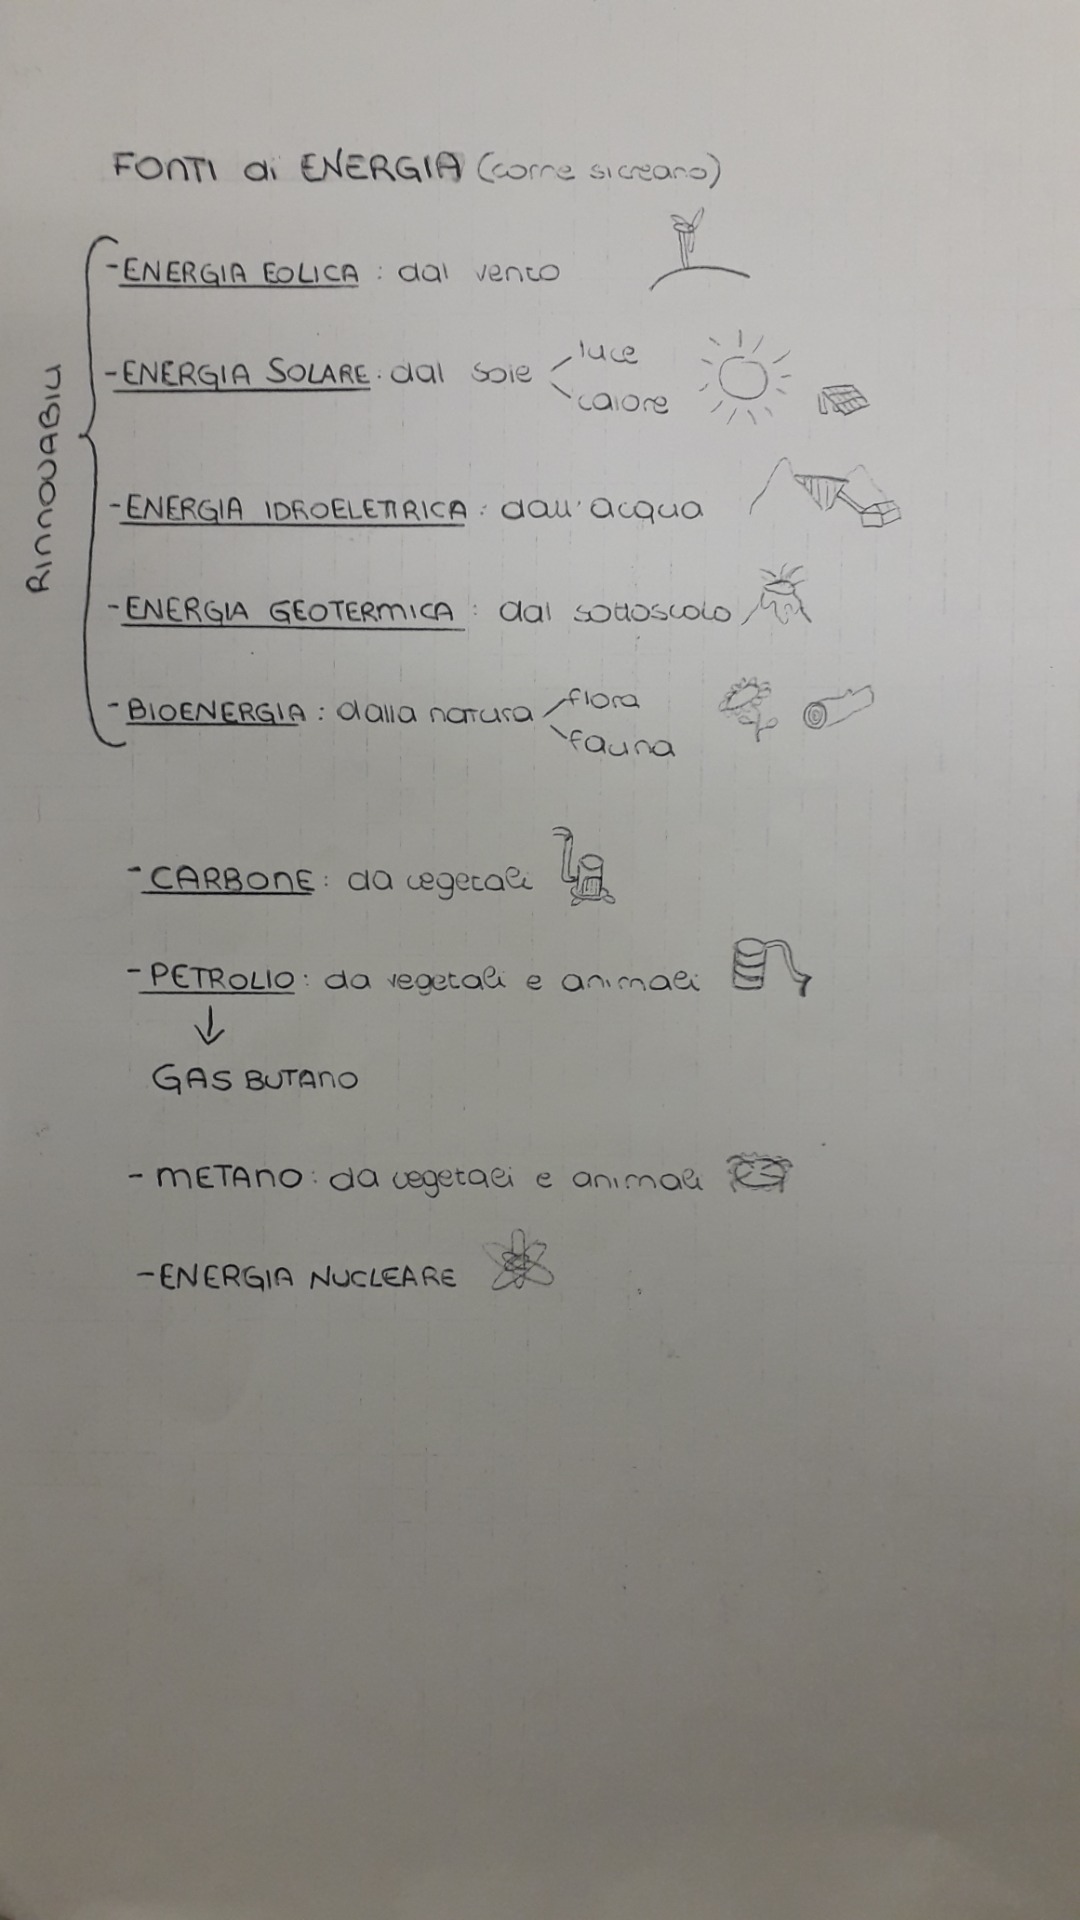 FONTI di ENERGIA (come si creano)
RINNOVABILI
- ENERGIA EOLICA: dal vento
- ENERGIA SOLARE: dal sole luce
calore
- ENERGIA IDROELETTRICA: dall'acqua
- ENERGIA GEOTERMICA: dal sottosuolo
- BIOENERGIA: dalla natura flora
fauna
- CARBONE: da vegetali
- PETROLIO: da vegetali e animali
↓
GAS BUTANO
- METANO: da vegetali e animali
- ENERGIA NUCLEARE